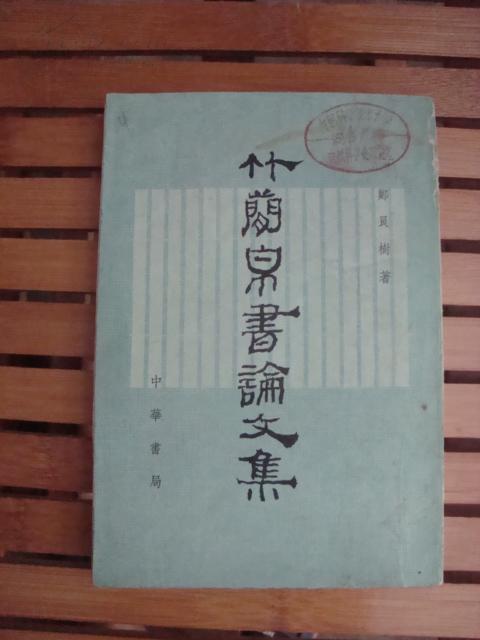 鄭良樹著
竹簡帛書論文集
中華書局